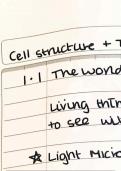 Cell structure +
1.1 The world
Living thin
to see wi
☆ Light Mic